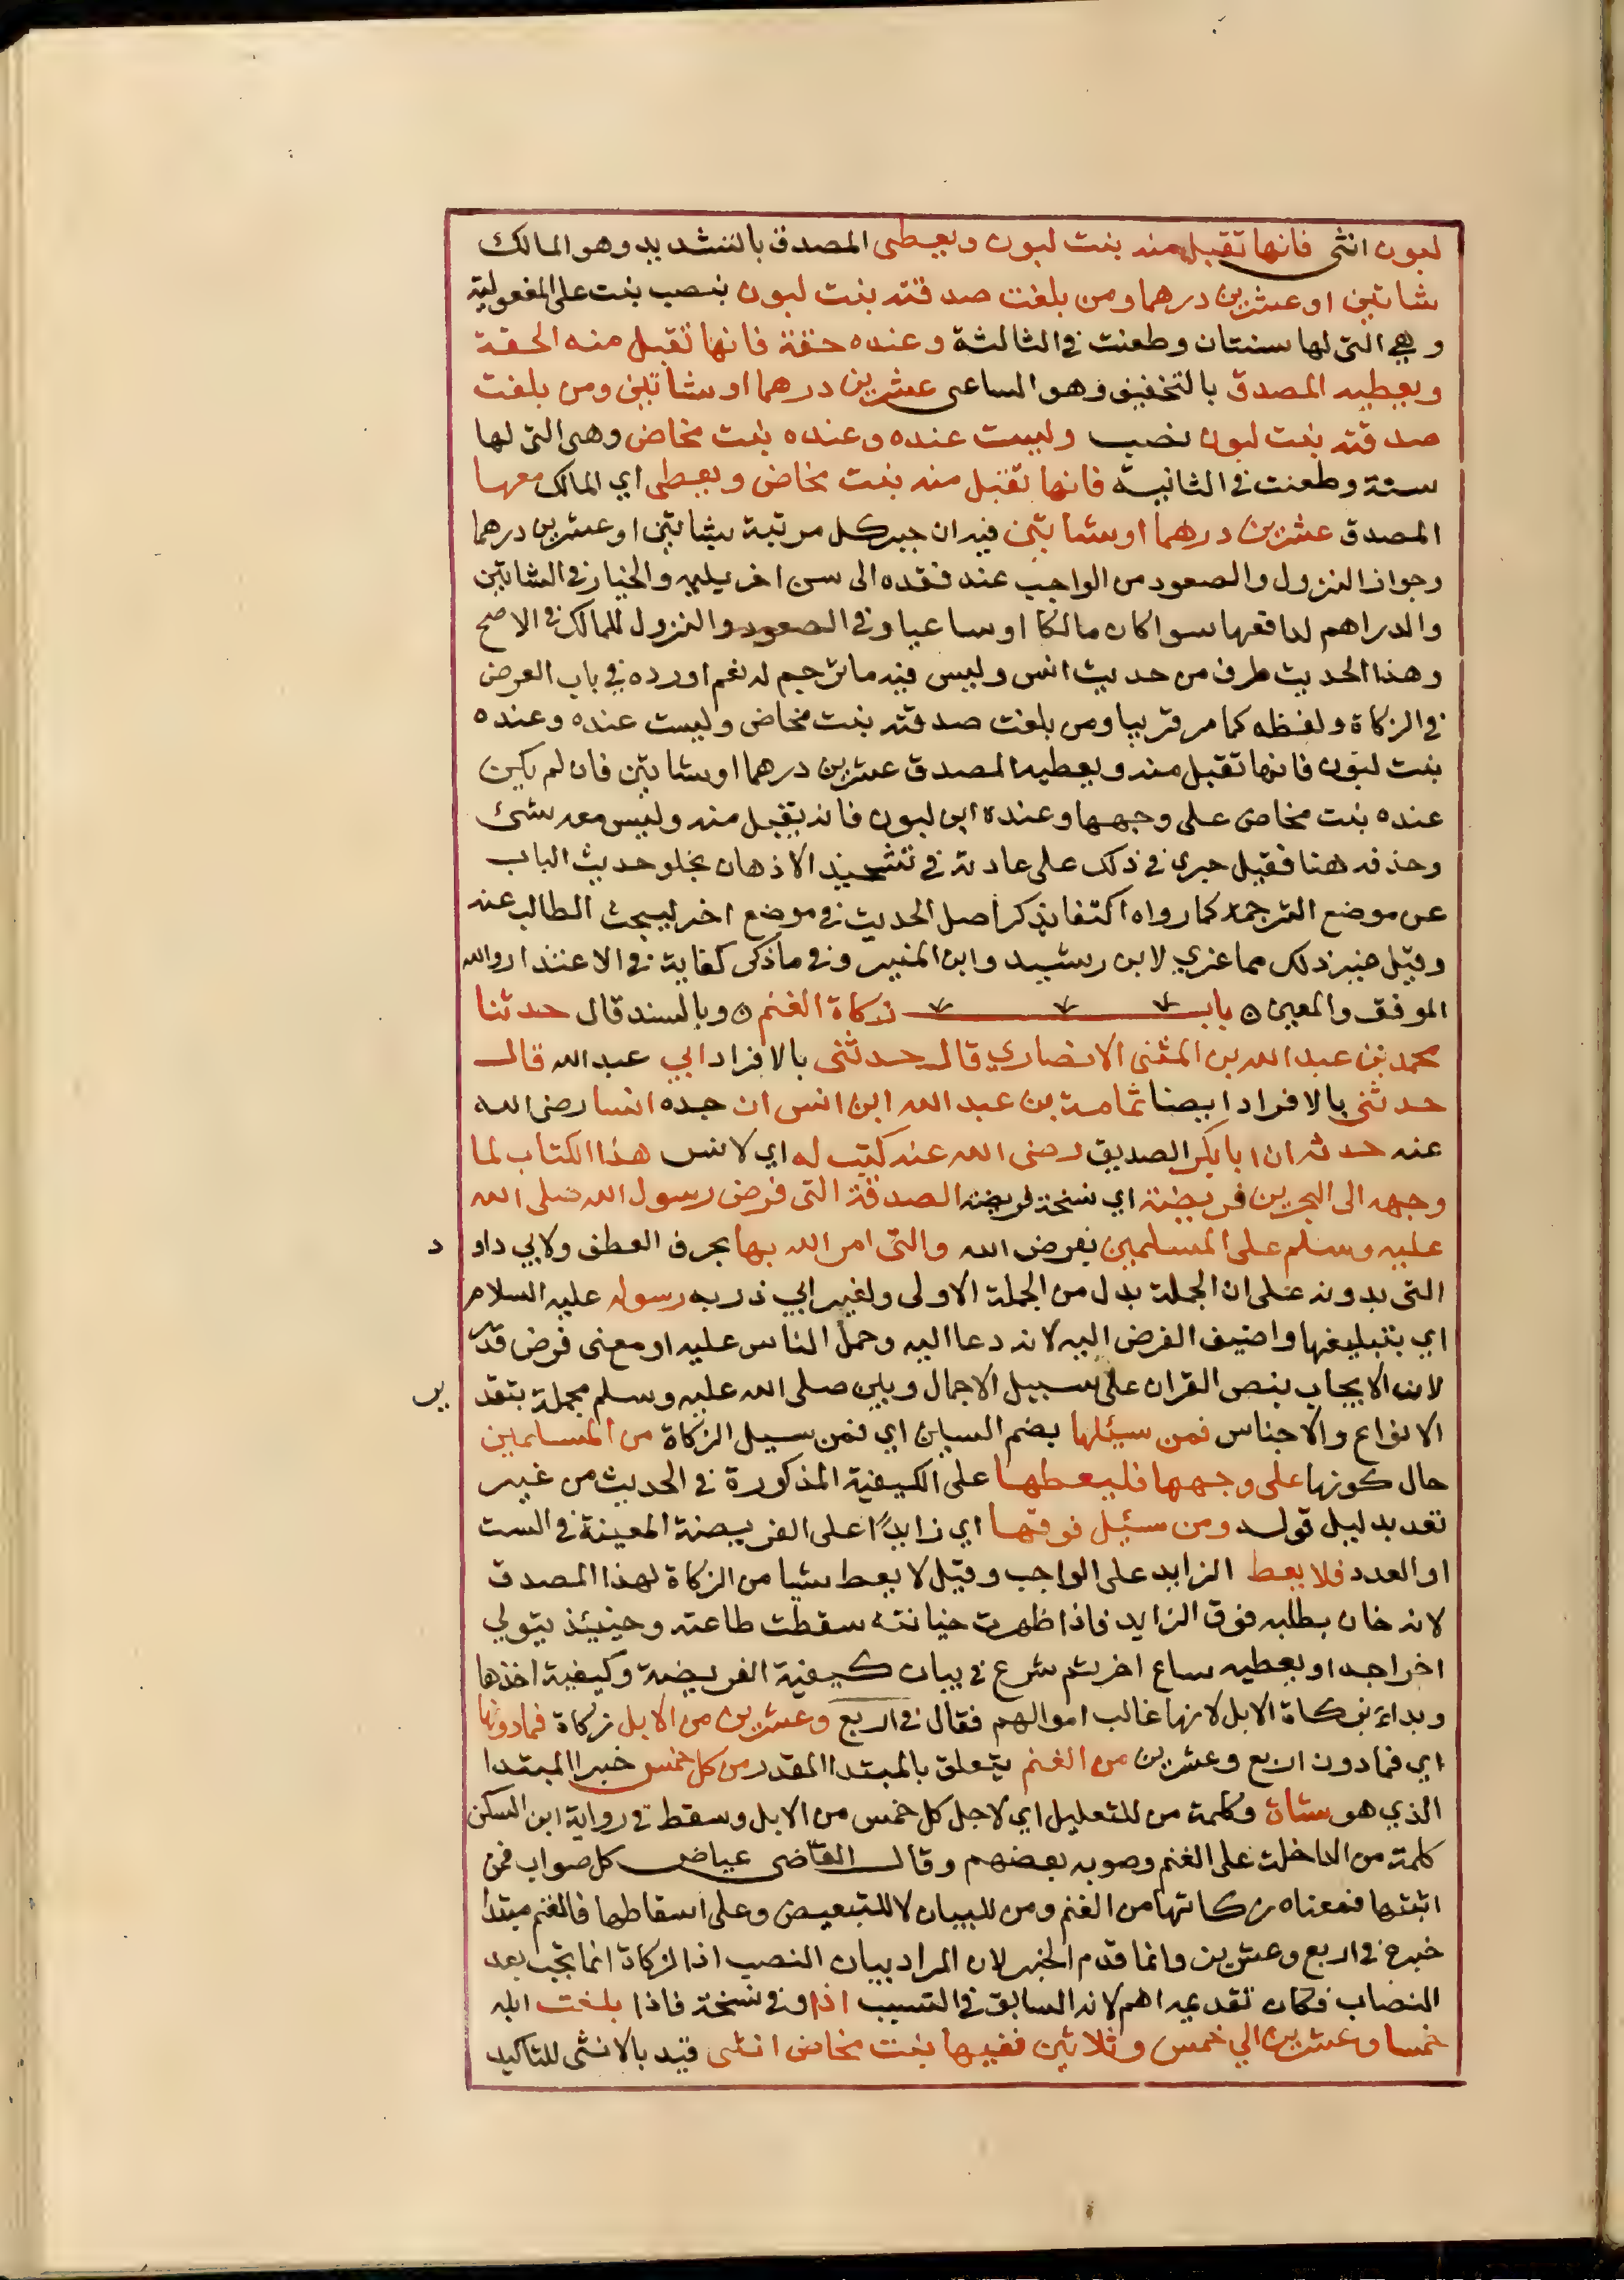 لبون انثى فانها تقبل منه بنت لبون ويعطى المصدق بالتشديد وهو المالك
شاتين او عشرين درهما ومن بلغت صدقته بنت لبون بنصب بنت على المفعولية
وهي التى لها سنتان وطعنت في الثالثة وعنده حقة فانها تقبل منه الحقة
ويعطيه المصدق بالتخفيف وهو الساعى عشرين درهما او شاتين ومن بلغت
صدقته بنت لبون نصب وليست عنده وعنده بنت مخاض وهى التى لها
سنة وطعنت في الثانية فانها تقبل منه بنت مخاض ويعطى اي المالك معها
المصدق عشرين درهما او شاتين فيه ان جبر كل مرتبة بشاتين او عشرين درهما
وجواز النزول والصعود من الواجب عند فقده الى سن اخر يليه والخيار في الشاتين
والدراهم لدافعها سوا كان مالكا او ساعيا وفي الصعود والنزول للمالك في الاصح
وهذا الحديث طرف من حديث انس وليس فيه ما ترجم له نعم اورده في باب العرض
في الزكاة ولفظه كما مر قريبا ومن بلغت صدقته بنت مخاض وليست عنده وعنده
بنت لبون فانها تقبل منه ويعطيه المصدق عشرين درهما او شاتين فان لم يكن
عنده بنت مخاض على وجهها وعنده ابن لبون فانه يقبل منه وليس معه شئ
وحذفه هنا فقيل جرى في ذلك على عادته في تشحيذ الاذهان بخلو حديث الباب
عن موضع الترجمة كما رواه اكتفا بذكر اصل الحديث في موضع اخر ليبحث الطالب عنه
وقيل غير ذلك مما عزي لابن رشيد وابن المنير وفي ما ذكر كفاية في الاعتذار والله
الموفق والمعين باب زكاة الغنم وبالسند قال حدثنا
محمد بن عبد الله بن المثنى الانصاري قال حدثنى بالافراد ابي عبد الله قال
حدثنى بالافراد ايضا ثمامة بن عبد الله ابن انس ان جده انسا رضى الله
عنه حدثه ان ابا بكر الصديق رضى الله عنه كتب له اي لانس هذا الكتاب لما
وجهه الى البحرين فريضة اي نسخة فريضة الصدقة التى فرض رسول الله صلى الله
عليه وسلم على المسلمين بفرض الله والتى امر الله بها بحرف العطف ولابي داود
التى بدونه على ان الجملة بدل من الجملة الاولى ولغير ابي ذر به رسوله عليه السلام
اي بتبليغها واضيف الفرض اليه لانه دعا اليه وحمل الناس عليه او معنى فرض قدر
لان الايجاب بنص القران على سبيل الاجمال وبين صلى الله عليه وسلم مجمله بتقدير
الانواع والاجناس فمن سيئلها بضم السين اي فمن سيل الزكاة من المسلمين
حال كونها على وجهها فليعطها على الكيفية المذكورة في الحديث من غير
تعد بدليل قوله ومن سئيل فوقها اي زايدا على الفريضة المعينة في الست
او العدد فلا يعط الزايد على الواجب وقيل لا يعط شيا من الزكاة لهذا المصدق
لانه خان بطلبه فوق الزايد فاذا ظهرت خيانته سقطت طاعته وحينئذ يتولى
اخراجه او يعطيه ساع اخر ثم شرع في بيان كيفية الفريضة وكيفية اخذها
وبداء بزكاة الابل لانها غالب اموالهم فقال في اربع وعشرين من الابل زكاة فما دونها
اي فما دون اربع وعشرين من الغنم يتعلق بالمبتدا المقدر من كل خمس خبر المبتدا
الذي هو شاة وكلمة من للتعليل اي لاجل كل خمس من الابل وسقط في رواية ابن السكن
كلمة من الداخلة على الغنم وصوبه بعضهم وقال القاضى عياض كل صواب فمن
اثبتها فمعناه زكاتها من الغنم ومن للبيان لا للتبعيض وعلى اسقاطها فالغنم مبتدا
خبره في اربع وعشرين وانما قدم الخبر لان المراد بيان النصب اذ الزكاة انما تجب بعد
النصاب فكان تقديمه اهم لانه السابق في التسبب اذا وفي نسخة فاذا بلغت ابله
خمسا وعشرين الي خمس وثلاثين ففيها بنت مخاض انثى قيد بالانثى للتاكيد